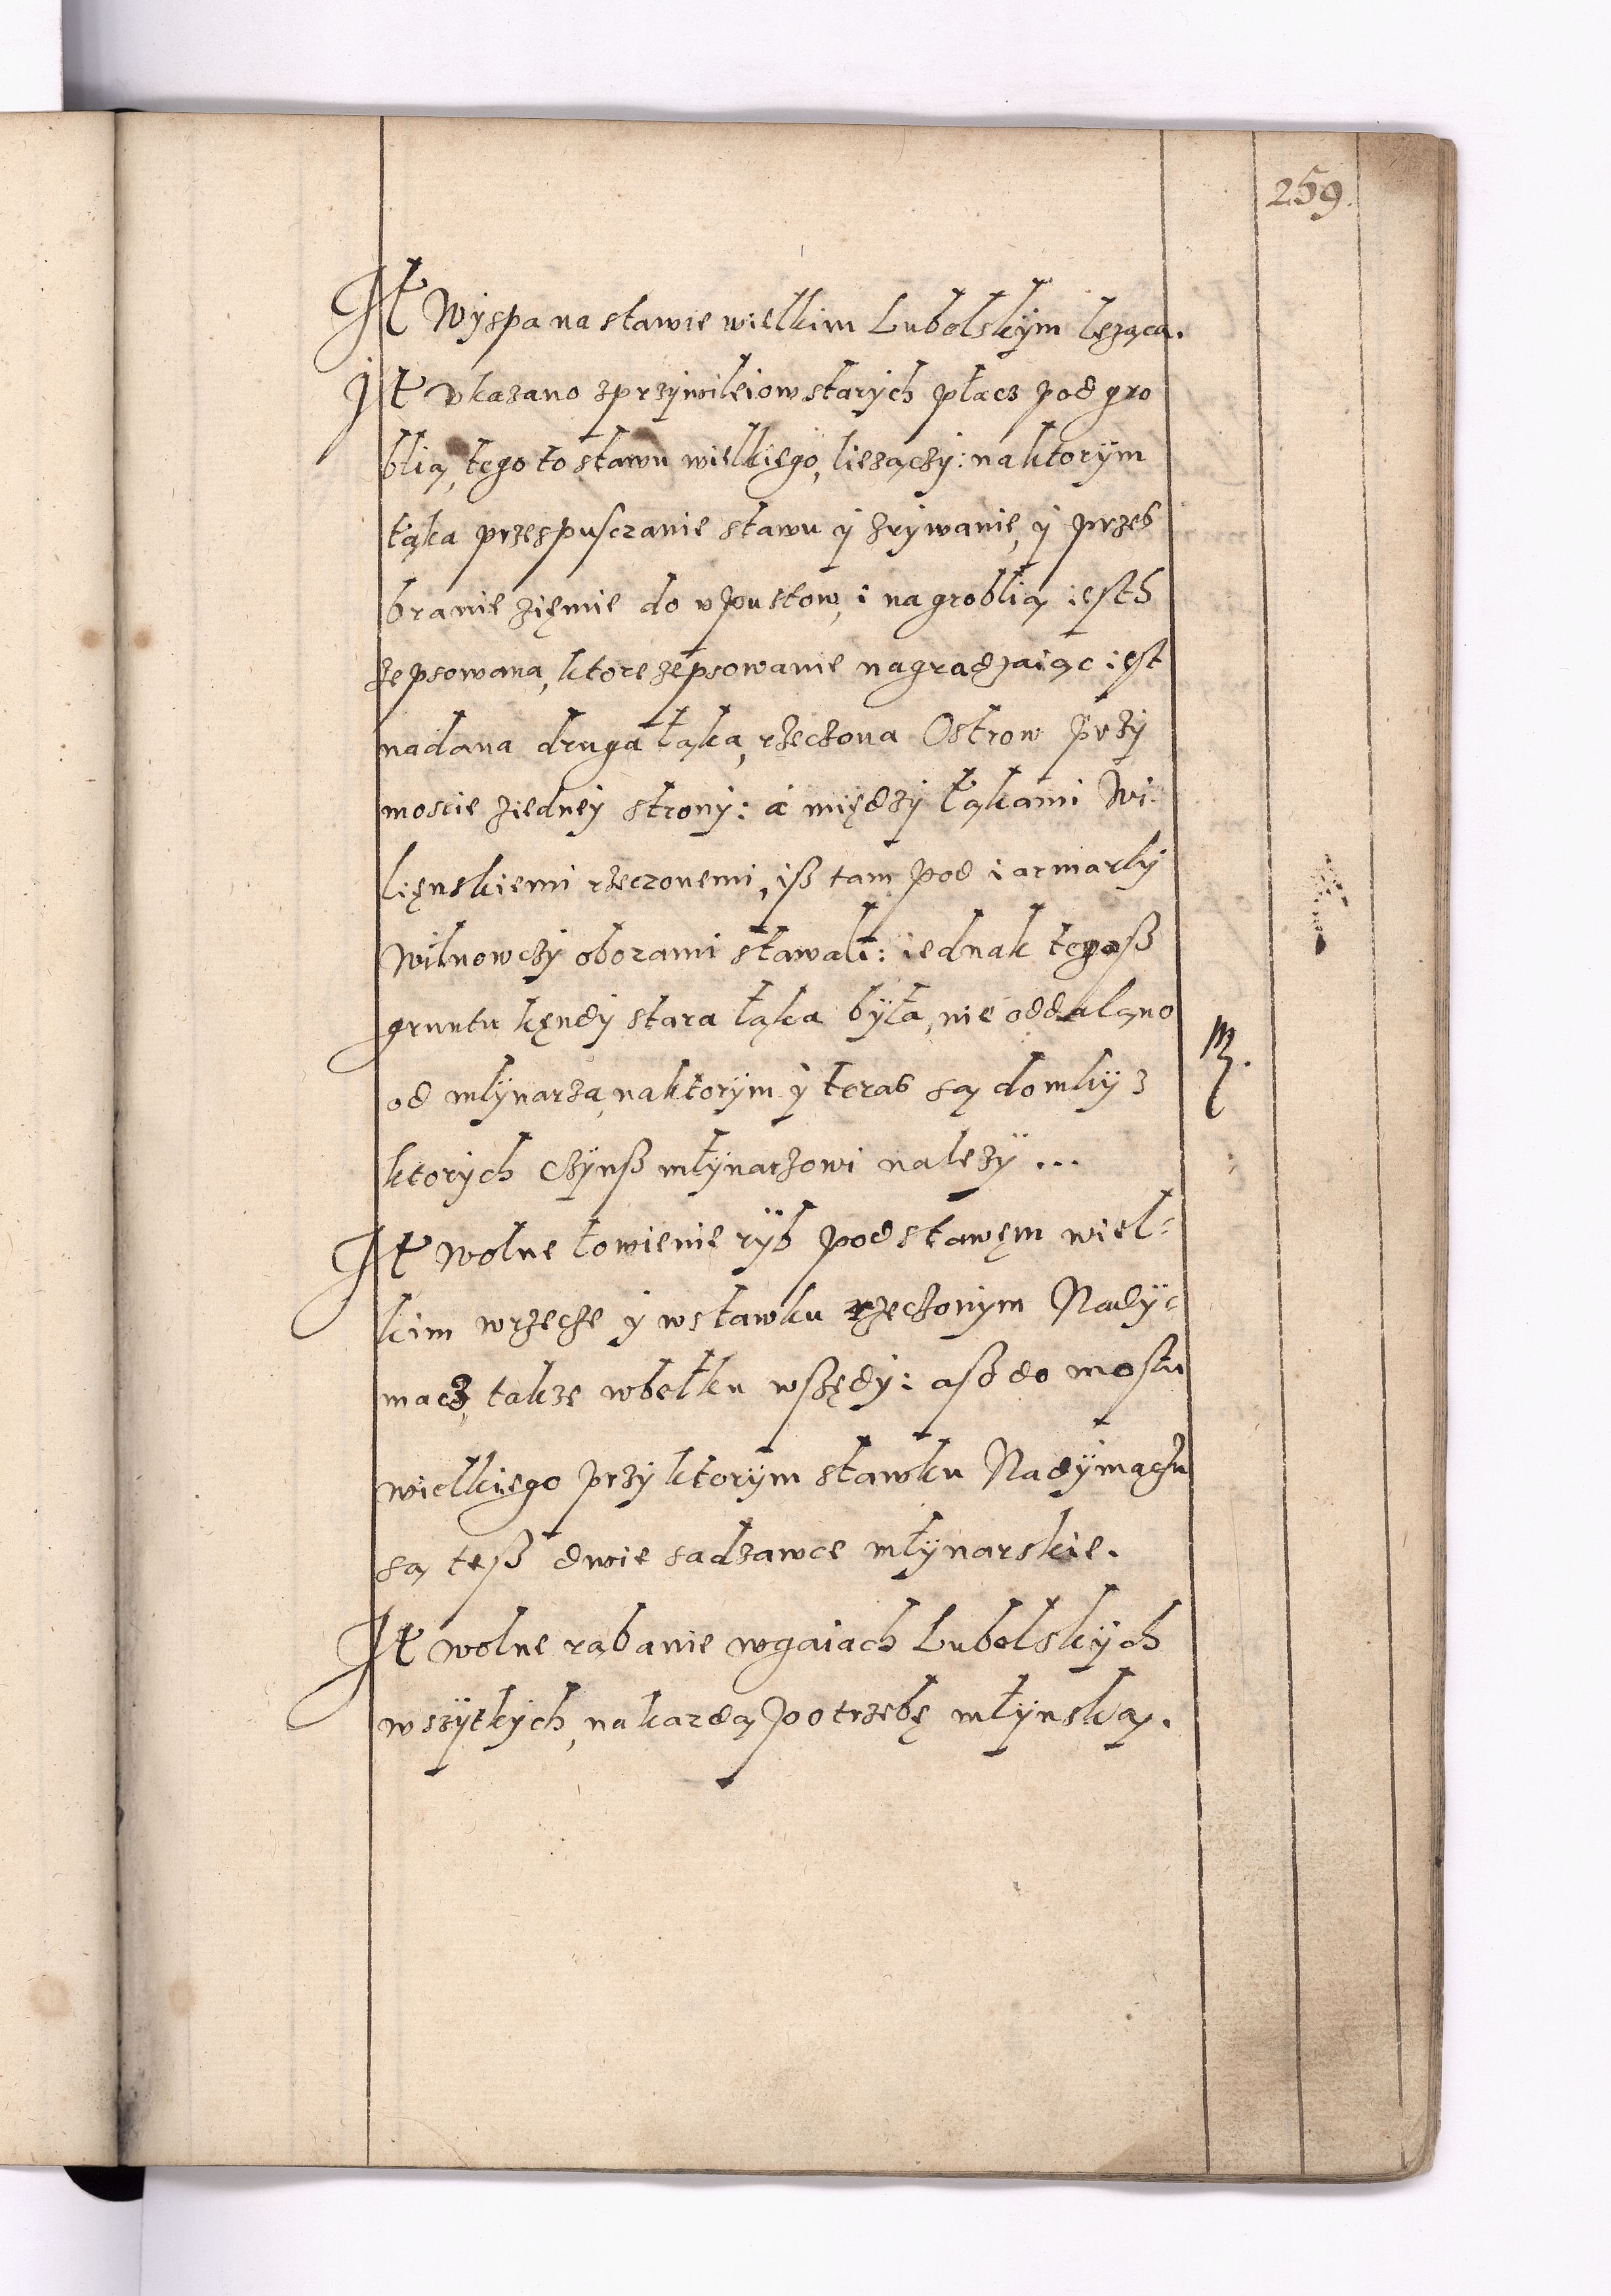 259.
It Wyspa na stawie wielkim Lubelskÿm lęząca.
It vkazano zprzÿwileiow starÿch płacz pod gro
blią, tego to stawu wielkięgo, liezączÿ: na ktorÿm
łąka przespusczanie stawu ÿ zrÿwanię, ÿ przes
branie zięmie do vpustow, i na groblią iesth
zepsowana, ktore zepsowanie nagradzaiąc iest
nadana druga łąka, rzeczona Ostrow przÿ
moscie ziednеÿ stronÿ: á międzÿ łąkami Wi-
lięnskiemi rzeczonemi, iß tam pod iarmarkÿ
Wilnowczÿ oborami stawali: iednak tegoß
gruntu kęndÿ stara łąka bÿła, nie oddalono
od młÿnarza, na ktorÿm ÿ teras są domkÿ z
ktorÿch Czÿnß młÿnarzowi nalezÿ...
It wolne łowienie rÿb podstawęm wiel-
kim wrzecze ÿ wstawku rzeczonÿm Nadÿ-
macz, takze wbełku wszędÿ: aß do mostu
wielkięgo przÿ ktorÿm stawku Nadÿmaczu
są teß dwie sadzawce młÿnarskie.
It wolne rąbanie wgaiach Lubelskÿch
wszÿtkÿch, na kazdą potrzebę młÿnską.